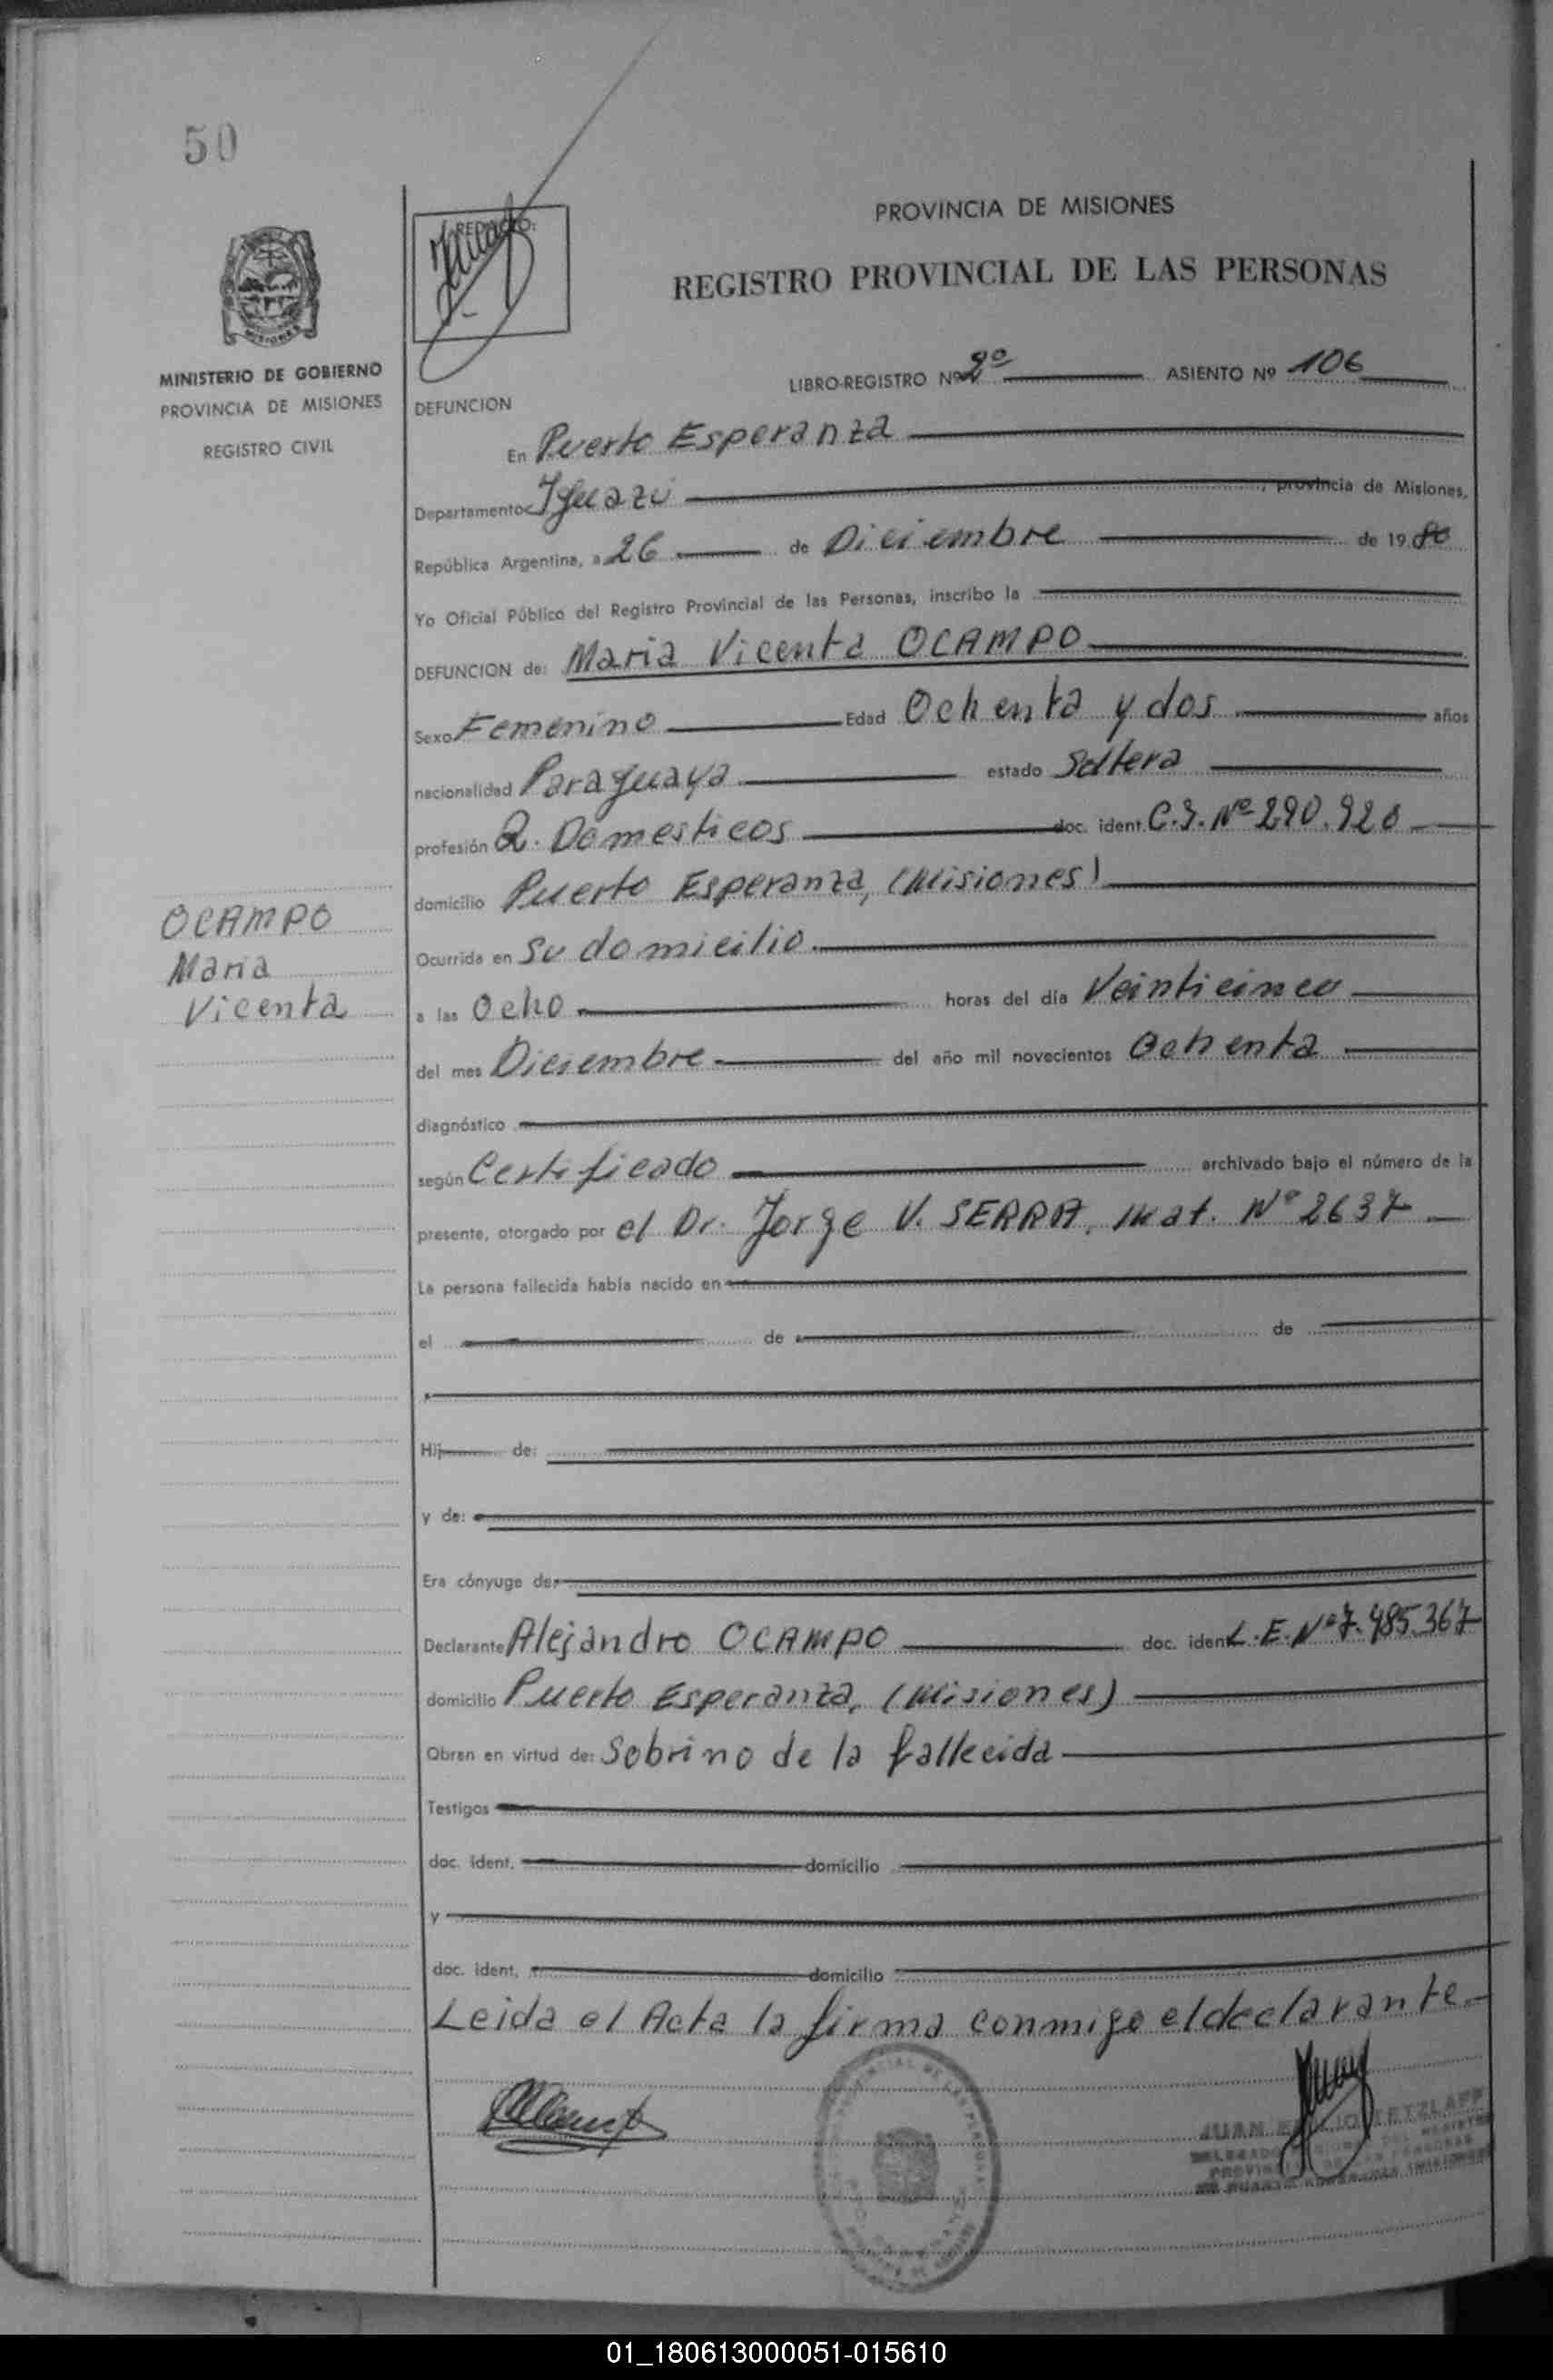 50
PROVINCIA DE MISIONES
REGISTRO PROVINCIAL DE LAS PERSONAS
MISIONES
MINISTERIO DE GOBIERNO
PROVINCIA DE MISIONES
REGISTRO CIVIL
LIBRO-REGISTRO Nº 2º ASIENTO Nº 106
DEFUNCION
En Puerto Esperanza
Departamento Iguazú, provincia de Misiones,
República Argentina, a 26 de Diciembre de 1980
Yo Oficial Público del Registro Provincial de las Personas, inscribo la
DEFUNCION de: Maria Vicenta OCAMPO
Sexo Femenino Edad Ochenta y dos años
nacionalidad Paraguaya estado Soltera
profesión Q. Domesticos doc. ident. C.I. Nº 290.920
domicilio Puerto Esperanza, (Misiones)
OCAMPO
Maria
Vicenta
Ocurrida en Su domicilio
a las Ocho horas del día Veinticinco
del mes Diciembre del año mil novecientos Ochenta
diagnóstico
según Certificado archivado bajo el número de la
presente, otorgado por el Dr. Jorge V. SERRA, Mat. Nº 2637
La persona fallecida había nacido en
el de de
Hij de:
y de:
Era cónyuge de:
Declarante Alejandro OCAMPO doc. ident. L.E. Nº 7.485.367
domicilio Puerto Esperanza, (Misiones)
Obran en virtud de: Sobrino de la fallecida
Testigos
doc. ident. domicilio
y
doc. ident. domicilio
Leida el Acta la firma conmigo el declarante
JUAN TETZLAFF
01_180613000051-015610